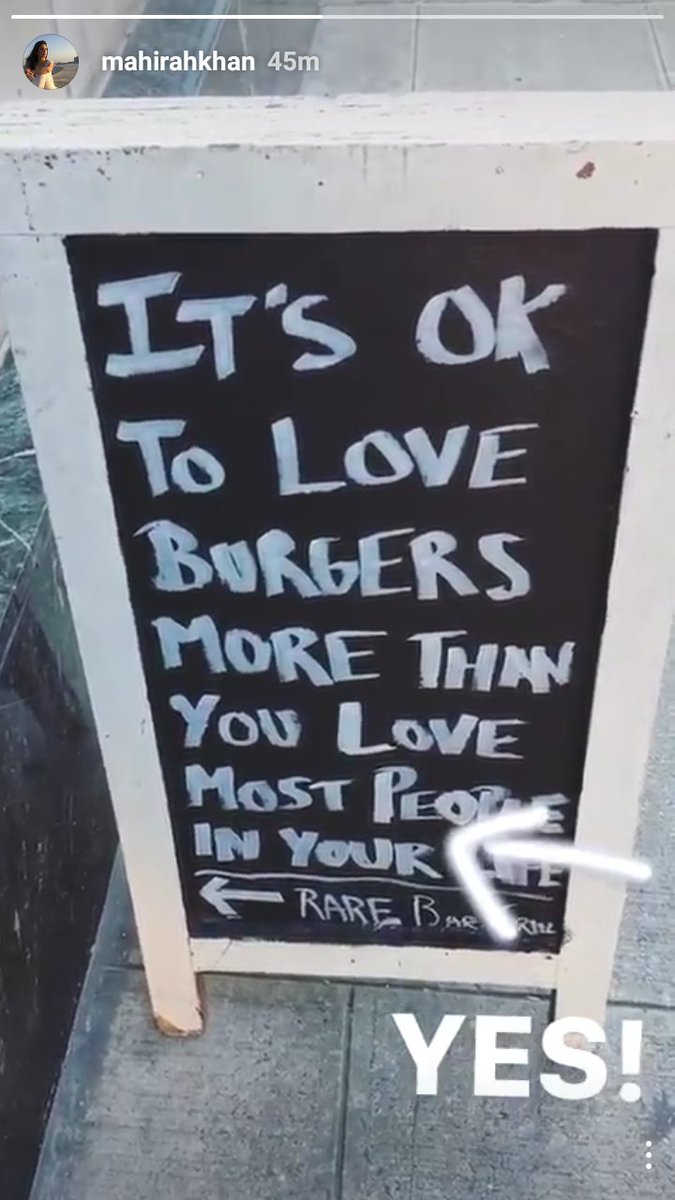 mahirahkhan 45m
IT'S OK
TO LOVE
BURGERS
MORE THAN
YOU LOVE
MOST PEOPLE
IN YOUR LIFE
← RARE BAR GRILL
YES!